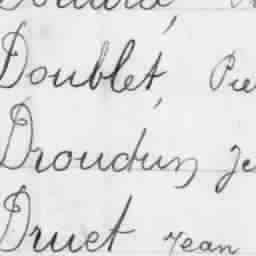 Doublet, Pie
Droudun, Je
Druet Jean